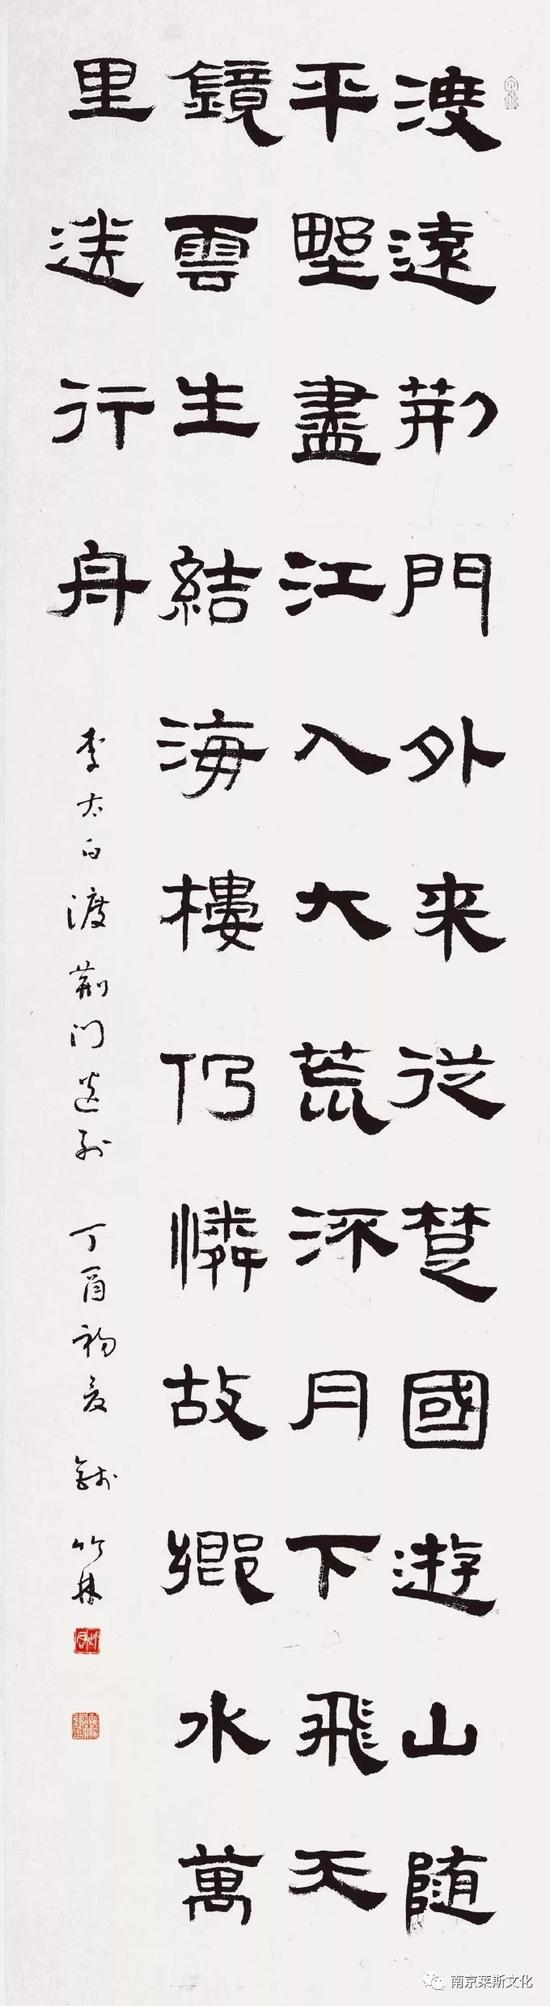 渡遠荊門外来從楚國遊山随
平野盡江入大荒流月下飛天
鏡雲生結海樓仍憐故鄉水萬
里送行舟
李太白渡荆门送别 丁酉初夏 钱竹林
南京莱斯文化